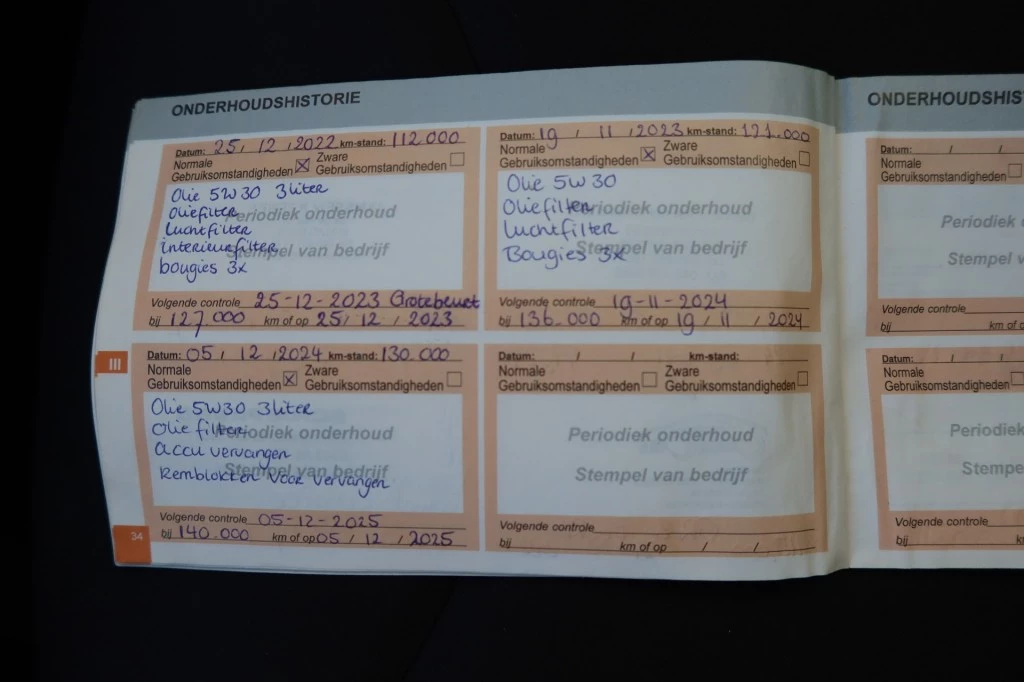 ONDERHOUDSHISTORIE
Datum: 25 / 12 / 2022 km-stand: 112.000
Normale Gebruiksomstandigheden ☒ Zware Gebruiksomstandigheden ☐
Olie 5W30 3 liter
Oliefilter
Luchtfilter
interieurfilter
bougies 3x
Periodiek onderhoud
Stempel van bedrijf
Volgende controle 25-12-2023 Grotebeurt
bij 127.000 km of op 25 / 12 / 2023
Datum: 19 / 11 / 2023 km-stand: 121.000
Normale Gebruiksomstandigheden ☒ Zware Gebruiksomstandigheden ☐
Olie 5W30
Oliefilter
Luchtfilter
Bougies 3x
Periodiek onderhoud
Stempel van bedrijf
Volgende controle 19-11-2024
bij 136.000 km of op 19 / 11 / 2024
III
Datum: 05 / 12 / 2024 km-stand: 130.000
Normale Gebruiksomstandigheden ☒ Zware Gebruiksomstandigheden ☐
Olie 5W30 3 liter
Olie filter
accu vervangen
Remblokken voor vervangen
Periodiek onderhoud
Stempel van bedrijf
Volgende controle 05-12-2025
bij 140.000 km of op 05 / 12 / 2025
Datum: / / km-stand:
Normale Gebruiksomstandigheden ☐ Zware Gebruiksomstandigheden ☐
Periodiek onderhoud
Stempel van bedrijf
Volgende controle
bij km of op / /
34
ONDERHOUDSHIS
Datum: / /
Normale
Gebruiksomstandigheden ☐
Periodiek
Stempel v
Volgende controle
bij km of o
Datum: / /
Normale
Gebruiksomstandigheden ☐
Periodiek
Stempe
Volgende controle
bij k